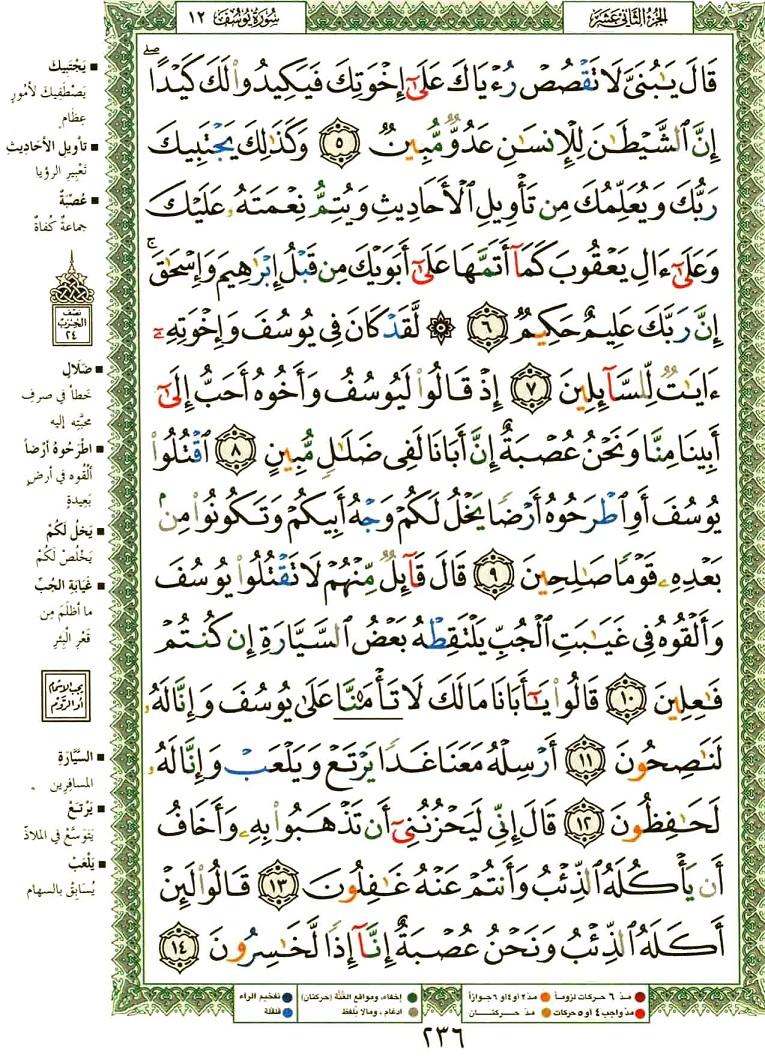 الجزء الثاني عشر
سورة يوسف ١٢
قَالَ يَٰبُنَىَّ لَا تَقْصُصْ رُءْيَاكَ عَلَىٰٓ إِخْوَتِكَ فَيَكِيدُوا۟ لَكَ كَيْدًا ۖ
إِنَّ ٱلشَّيْطَٰنَ لِلْإِنسَٰنِ عَدُوٌّ مُّبِينٌ ٥ وَكَذَٰلِكَ يَجْتَبِيكَ
رَبُّكَ وَيُعَلِّمُكَ مِن تَأْوِيلِ ٱلْأَحَادِيثِ وَيُتِمُّ نِعْمَتَهُۥ عَلَيْكَ
وَعَلَىٰٓ ءَالِ يَعْقُوبَ كَمَآ أَتَمَّهَا عَلَىٰٓ أَبَوَيْكَ مِن قَبْلُ إِبْرَٰهِيمَ وَإِسْحَٰقَ ۚ
إِنَّ رَبَّكَ عَلِيمٌ حَكِيمٌ ٦ ۞ لَّقَدْ كَانَ فِى يُوسُفَ وَإِخْوَتِهِۦٓ
ءَايَٰتٌ لِّلسَّآئِلِينَ ٧ إِذْ قَالُوا۟ لَيُوسُفُ وَأَخُوهُ أَحَبُّ إِلَىٰٓ
أَبِينَا مِنَّا وَنَحْنُ عُصْبَةٌ إِنَّ أَبَانَا لَفِى ضَلَٰلٍ مُّبِينٍ ٨ ٱقْتُلُوا۟
يُوسُفَ أَوِ ٱطْرَحُوهُ أَرْضًا يَخْلُ لَكُمْ وَجْهُ أَبِيكُمْ وَتَكُونُوا۟ مِنۢ
بَعْدِهِۦ قَوْمًا صَٰلِحِينَ ٩ قَالَ قَآئِلٌ مِّنْهُمْ لَا تَقْتُلُوا۟ يُوسُفَ
وَأَلْقُوهُ فِى غَيَٰبَتِ ٱلْجُبِّ يَلْتَقِطْهُ بَعْضُ ٱلسَّيَّارَةِ إِن كُنتُمْ
فَٰعِلِينَ ١٠ قَالُوا۟ يَٰٓأَبَانَا مَا لَكَ لَا تَأْمَ۫نَّا عَلَىٰ يُوسُفَ وَإِنَّا لَهُۥ
لَنَٰصِحُونَ ١١ أَرْسِلْهُ مَعَنَا غَدًا يَرْتَعْ وَيَلْعَبْ وَإِنَّا لَهُۥ
لَحَٰفِظُونَ ١٢ قَالَ إِنِّى لَيَحْزُنُنِىٓ أَن تَذْهَبُوا۟ بِهِۦ وَأَخَافُ
أَن يَأْكُلَهُ ٱلذِّئْبُ وَأَنتُمْ عَنْهُ غَٰفِلُونَ ١٣ قَالُوا۟ لَئِنْ
أَكَلَهُ ٱلذِّئْبُ وَنَحْنُ عُصْبَةٌ إِنَّآ إِذًا لَّخَٰسِرُونَ ١٤
■ يَجْتَبِيكَ
يَصْطَفِيكَ لأُمورٍ
عِظَامٍ
■ تأويل الأحاديث
تَعْبِيرِ الرؤيا
■ عُصْبَةٌ
جماعةٌ كُفاةٌ
نصف
الحزب
٢٤
■ ضَلَالٍ
خطأ في صرفِ
محبَّتِه إليه
■ اطْرَحُوهُ أرْضاً
ألْقُوه في أرضٍ
بَعِيدةٍ
■ يَخلُ لَكُمْ
يَخْلُصْ لَكُمْ
■ غَيَابَةِ الجُبِّ
ما أظلَمَ مِن
قَعْرِ الْبِئرِ
يجب الإشمام
أو الرَّوْم
■ السَّيَّارَةِ
المسافِرِين
■ يَرْتَعْ
يَتَوسَّعْ في الملاذِّ
■ يَلْعَبْ
يُسَابِقْ بالسهام
مدّ ٦ حركات لزوماً
مدّ ٢ أو ٤ أو ٦ جوازاً
إخفاء، ومواقع الغُنَّة (حركتان)
تفخيم الراء
مدّ واجب ٤ أو ٥ حركات
مدّ حركتان
ادغام، ومالا يُلفظ
قلقلة
٢٣٦